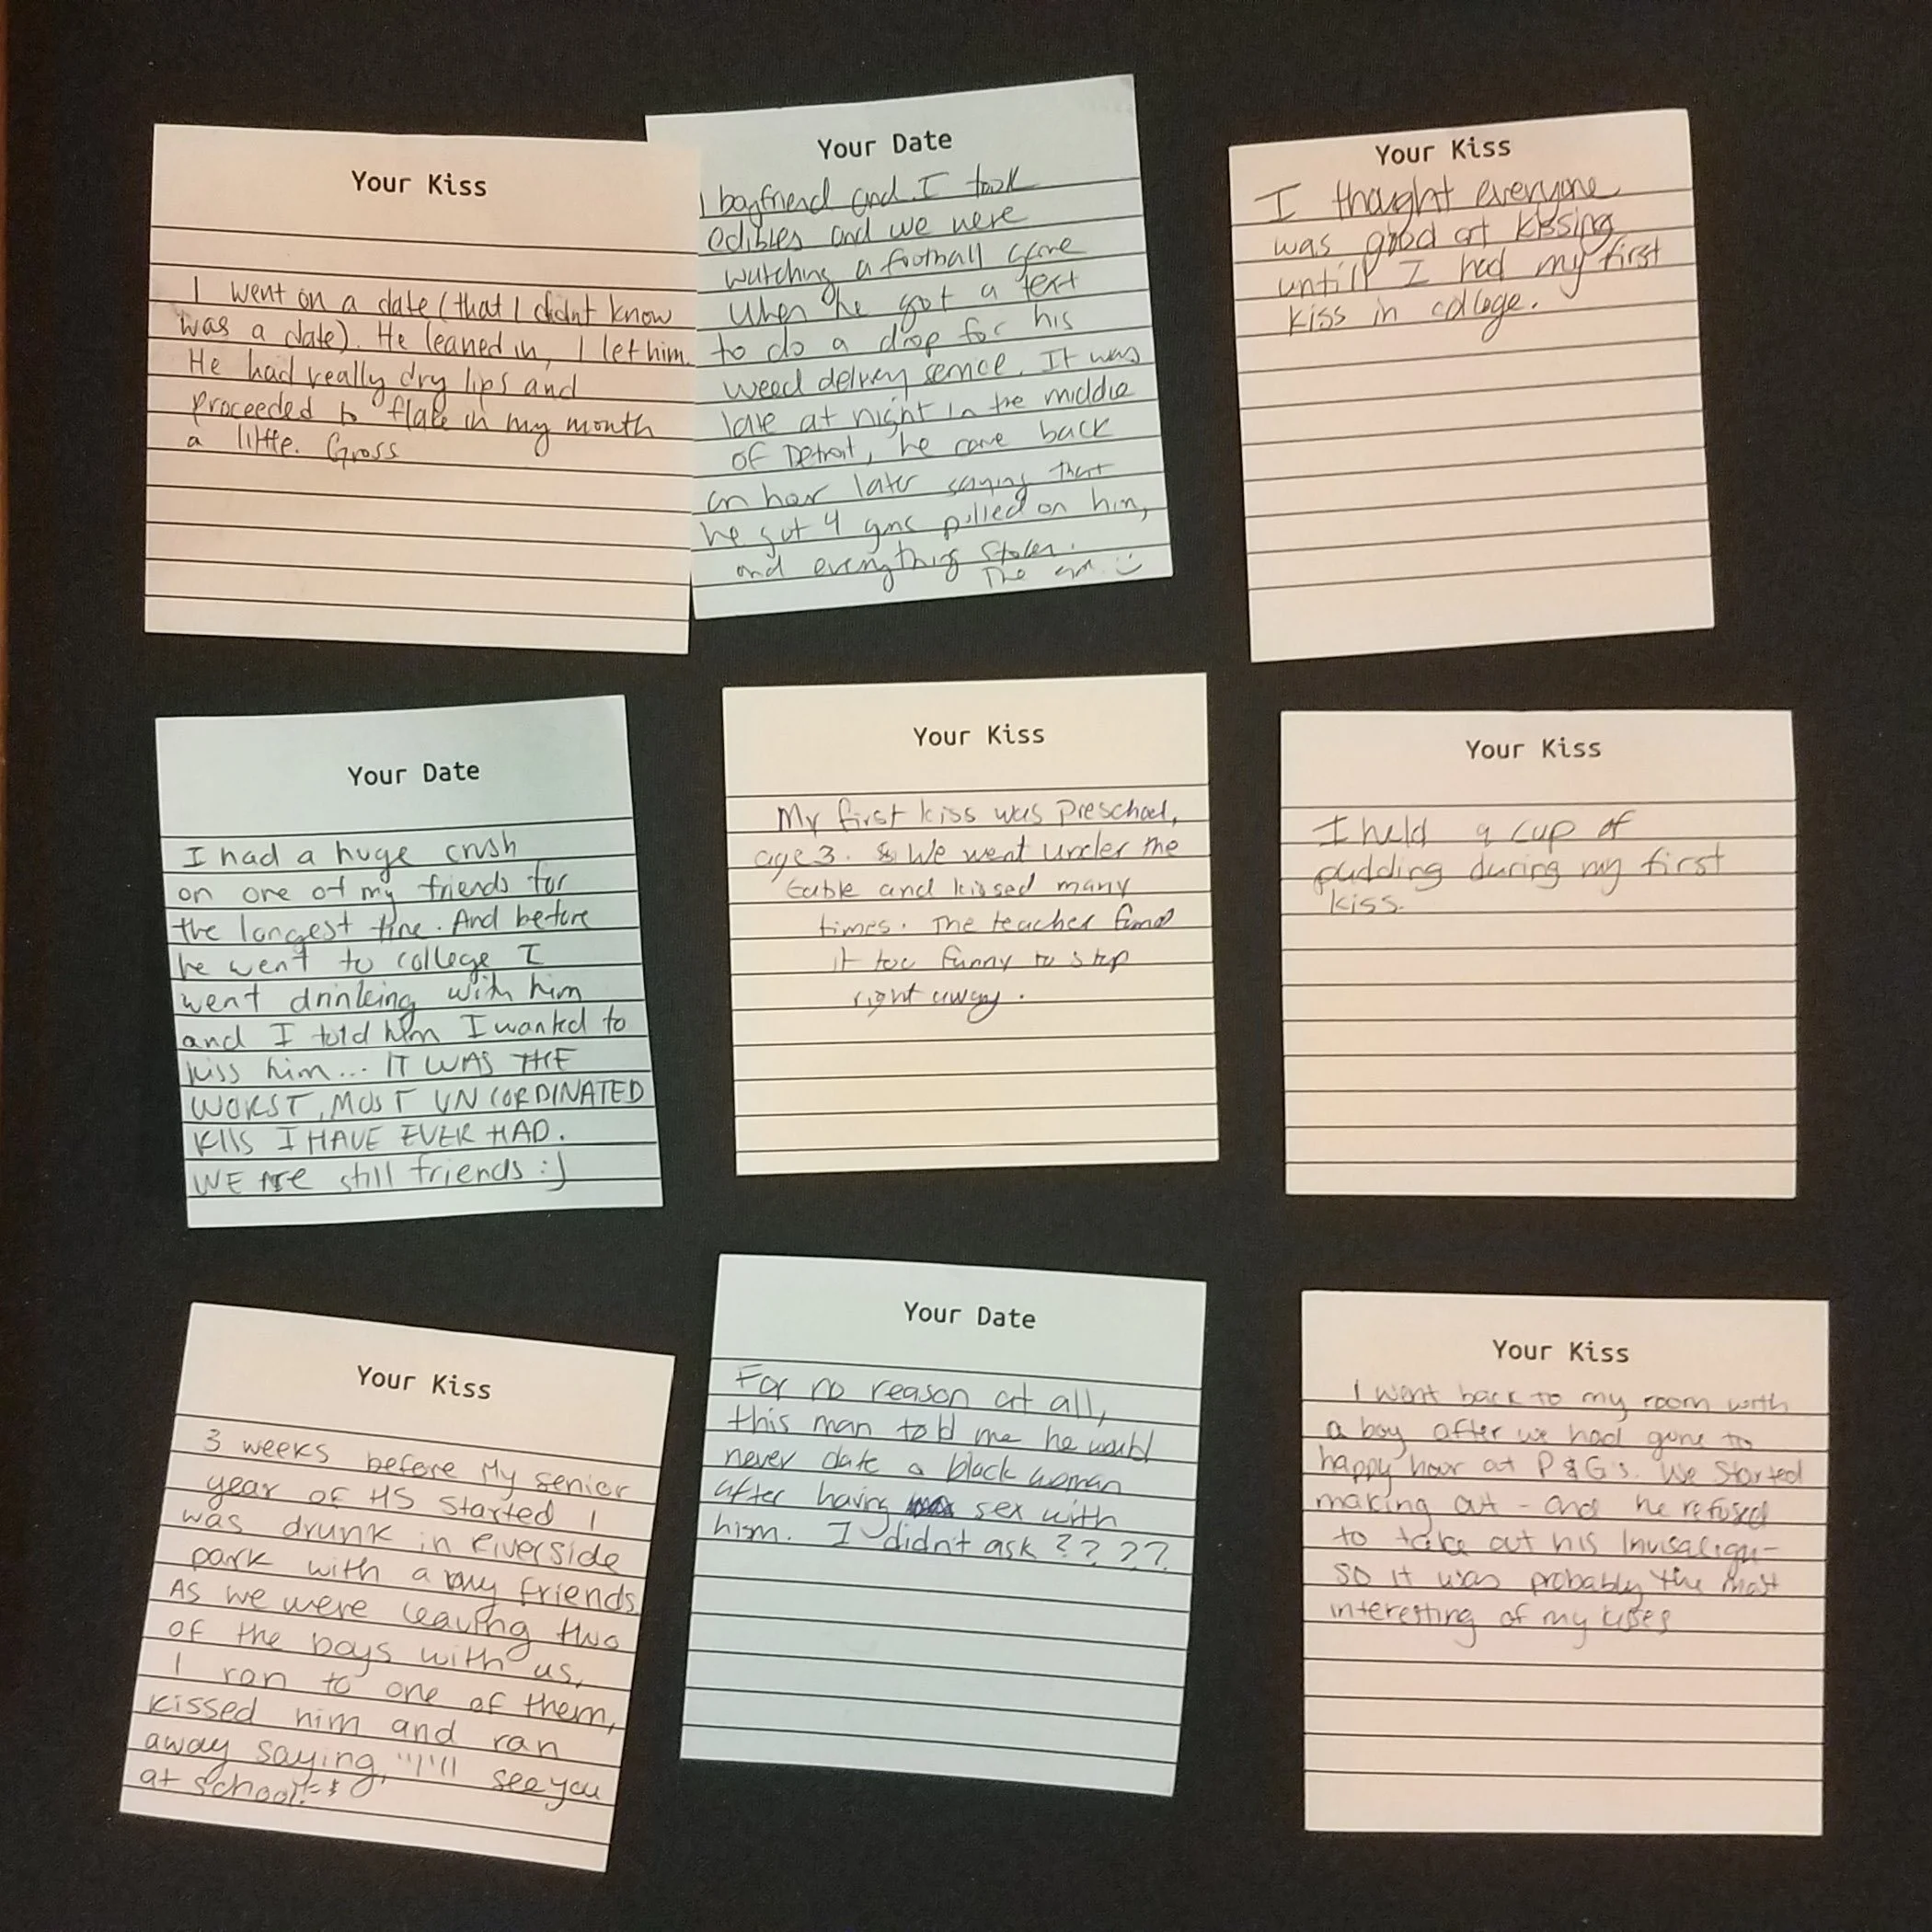 Your Kiss
I went on a date (that I didnt know
was a date). He leaned in, I let him.
He had really dry lips and
proceeded to flake in my mouth
a little. Gross
Your Date
boyfriend and I took
edibles and we were
watching a football game
when he got a text
to do a drop for his
weed delivery service. It was
late at night in the middle
of Detroit, he came back
an hour later saying that
he got 4 guns pulled on him,
and everything stolen.
The end. :)
Your Kiss
I thought everyone
was good at kissing
untill I had my first
kiss in college.
Your Date
I had a huge crush
on one of my friends for
the longest time. And before
he went to college I
went drinking with him
and I told him I wanted to
kiss him... IT WAS THE
WORST, MOST UNCORDINATED
KIIS I HAVE EVER HAD.
WE ARE still friends :)
Your Kiss
My first kiss was preschool,
age 3. We went under the
table and kissed many
times. The teacher found
it too funny to stop
right away.
Your Kiss
I held a cup of
pudding during my first
kiss.
Your Kiss
3 weeks before My senior
year of HS started I
was drunk in Riverside
park with a my friends.
As we were leaving two
of the boys with us,
I ran to one of them,
kissed him and ran
away saying, "I'll see you
at school!"
Your Date
For no reason at all,
this man told me he would
never date a black woman
after having sex with
him. I didn't ask ????
Your Kiss
I went back to my room with
a boy after we had gone to
happy hour at P&G's. We started
making out - and he refused
to take out his Invisalign -
so it was probably the most
interesting of my kisses